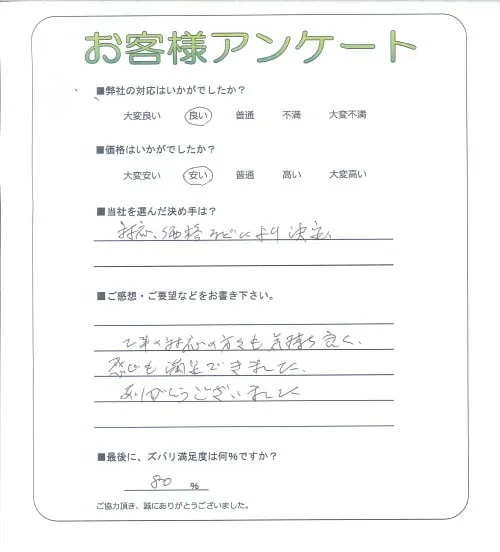 お客様アンケート
■弊社の対応はいかがでしたか？
大変良い 良い 普通 不満 大変不満
■価格はいかがでしたか？
大変安い 安い 普通 高い 大変高い
■当社を選んだ決め手は？
対応、価格などにより決定、
■ご感想・ご要望などをお書き下さい。
工事の対応の方々も気持ち良く、
も満足できました、
ありがとうございました
■最後に、ズバリ満足度は何%ですか？
80 %
ご協力頂き、誠にありがとうございました。